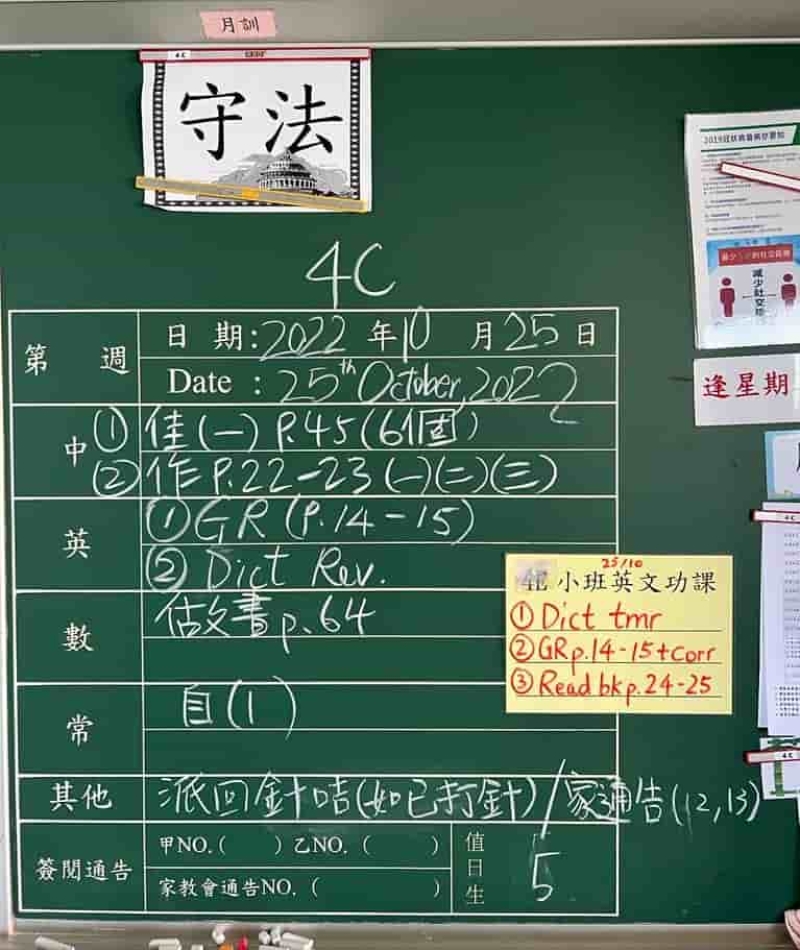 月訓
4C
守法
2019冠狀病毒病
減少社交距離
逢星期
4C
第 週
日 期:2022 年10 月25日
Date : 25th October, 2022
中
① 佳(一) P.45(6個)
② 作 P.22-23 (一)(二)(三)
英
① GR (P.14-15)
② Dict Rev.
25/10
小班英文功課
① Dict tmr
② GR p.14-15+corr
③ Read bk p.24-25
數
做書 p.64
常
自(1)
其他
派回針咭(如已打針)/家通告(12,13)
簽閱通告
甲NO.( )乙NO.( )
家教會通告NO.( )
值日生
5
4C
4C